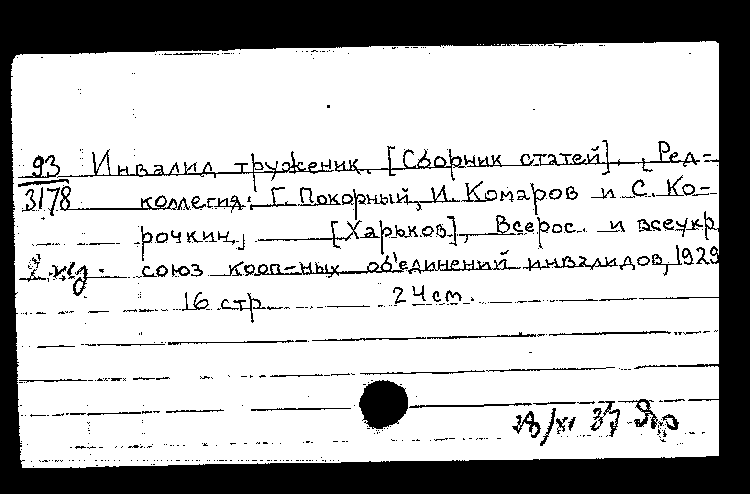 93 Инвалид труженик. [Сборник статей]. [Ред-
3178 коллегия: Г. Покорный, И. Комаров и С. Ко-
рочкин.] [Харьков], Всерос. и всеукр.
2 экз. союз кооп-ных об'единений инвалидов, 1929
16 стр. 24 см.
28/XI 37